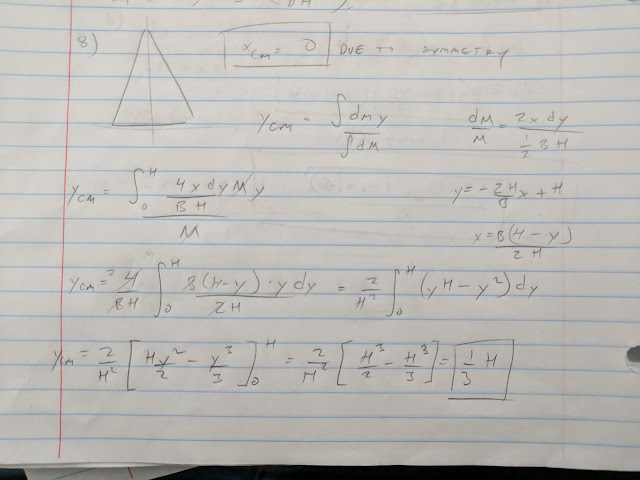 8) x_cm = 0 DUE TO SYMMETRY
y_cm = ∫dm y / ∫dM    dM/M = 2x dy / (1/2 BH)
y_cm = ∫_0^H (4x dy M y / BH) / M    y = -2H/B x + H
x = B(H-y) / 2H
y_cm = 4/BH ∫_0^H B(H-y)·y dy / 2H = 2/H² ∫_0^H (yH - y²) dy
y_cm = 2/H² [Hy²/2 - y³/3]_0^H = 2/H² [H³/2 - H³/3] = 1/3 H